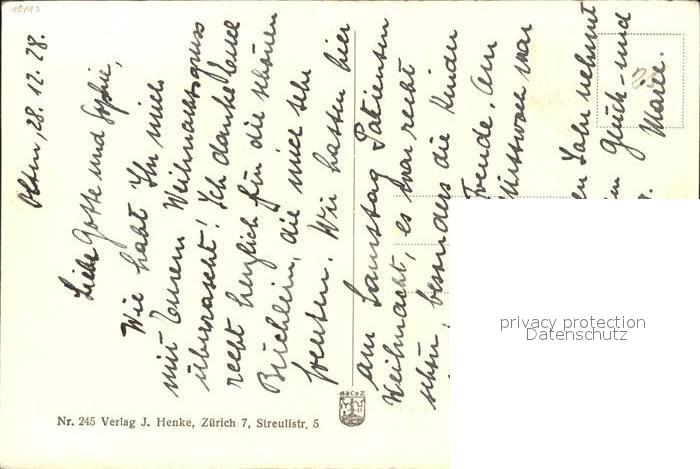 Olten, 28. 12. 28.
Liebe Gotte und Sophie,
Wie habt Ihr mich
mit Eurem Weihnachtsgruss
überrascht! Ich danke Euch
recht herzlich für die schönen
Büchlein, die mich sehr
freuten. Wir hatten hier
am Samstag Patienten
Weihnacht, es war recht
schön, besonders die Kinder
Freude. Am
Mittwoch war
en Jahr nehmt
Glück- und
Marie.
Nr. 245 Verlag J. Henke, Zürich 7, Streulistr. 5
privacy protection
Datenschutz